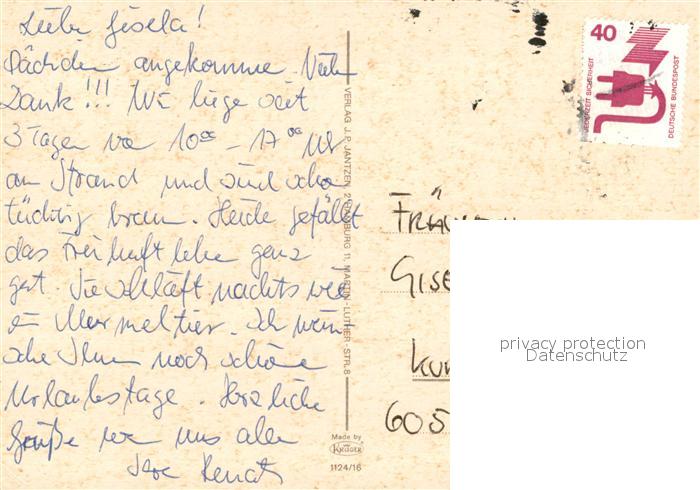 Liebe Gisela!
Päckchen angekommen. Vielen
Dank!!! Wir liegen seit
3 Tagen von 10⁰⁰ - 17⁰⁰ Uhr
am Strand und sind schon
tüchtig braun. Heide gefällt
das Freiluftleben ganz
gut. Sie schläft nachts wie
ein Murmeltier. Ich wün-
sche Ihnen noch schöne
Urlaubstage. Herzliche
Grüße von uns allen
Ihre Renate
VERLAG J. P. JANTZEN, 2 HAMBURG 11, MARTIN-LUTHER-STR. 8
Made by
KRÜGER
1124/16
40
JEDERZEIT SICHERHEIT
DEUTSCHE BUNDESPOST
FRÄULEIN
GISE
KUR
605
privacy protection
Datenschutz